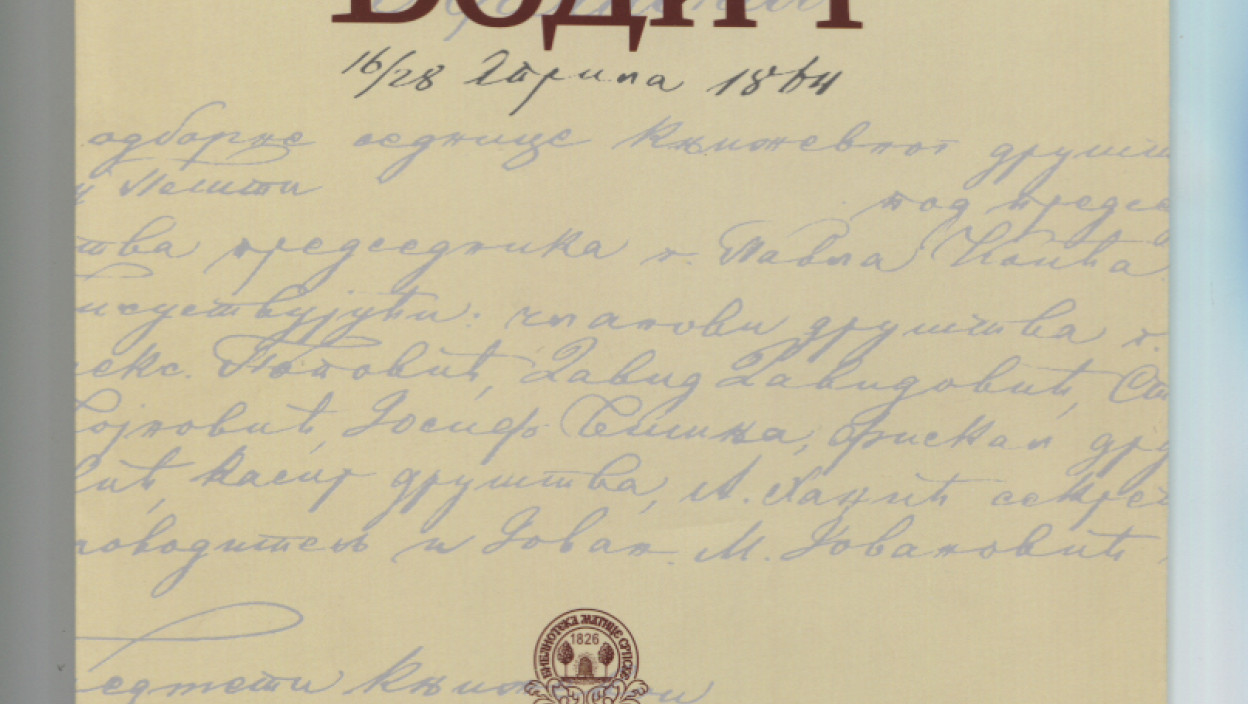 ВОДИЧ
16/28 Априла 1864
одборне седнице Књижевног друшт
у Пешти под предсе
тва председника г. Павла
исуствујући: чланови друштва г.
екс. Поповић, Давид Давидовић, Ст
ојновић, Јосиф фискал дру
вић, касир друштва, А. Хаџић секре
ловодитељ и Јован М. Јовановић
БИБЛИОТЕКА МАТИЦЕ СРПСКЕ
1826